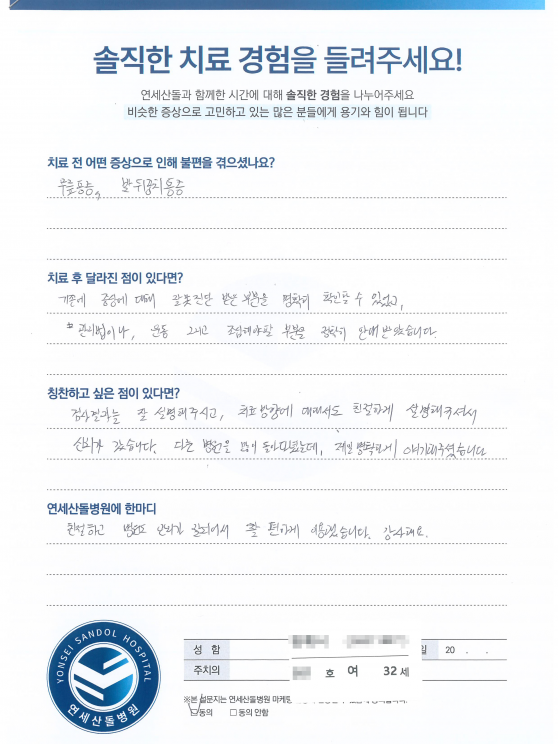 솔직한 치료 경험을 들려주세요!
연세산돌과 함께한 시간에 대해 솔직한 경험을 나누어주세요
비슷한 증상으로 고민하고 있는 많은 분들에게 용기와 힘이 됩니다
치료 전 어떤 증상으로 인해 불편을 겪으셨나요?
무릎통증, 발뒤꿈치통증
치료 후 달라진 점이 있다면?
기존에 증상에 대해 잘못진단 받은 부분을 명확히 확인할 수 있었고,
관리법이나, 운동 그리고 조심해야할 부분을 정확히 안내받았습니다.
칭찬하고 싶은 점이 있다면?
검사결과를 잘 설명해주시고, 치료방향에 대해서도 친절하게 설명해주셔서
신뢰가 갔습니다. 다른 병원을 많이 돌아다녔는데, 제일 명확하게 얘기해주셨습니다
연세산돌병원에 한마디
친절하고 병원도 관리가 잘되어서 편하게 이용했습니다. 감사해요.
YONSEI SANDOL HOSPITAL
연세산돌병원
성 함 일 20 . .
주치의 호 여 32세
※본 설문지는 연세산돌병원 마케팅
동의 □ 동의 안함